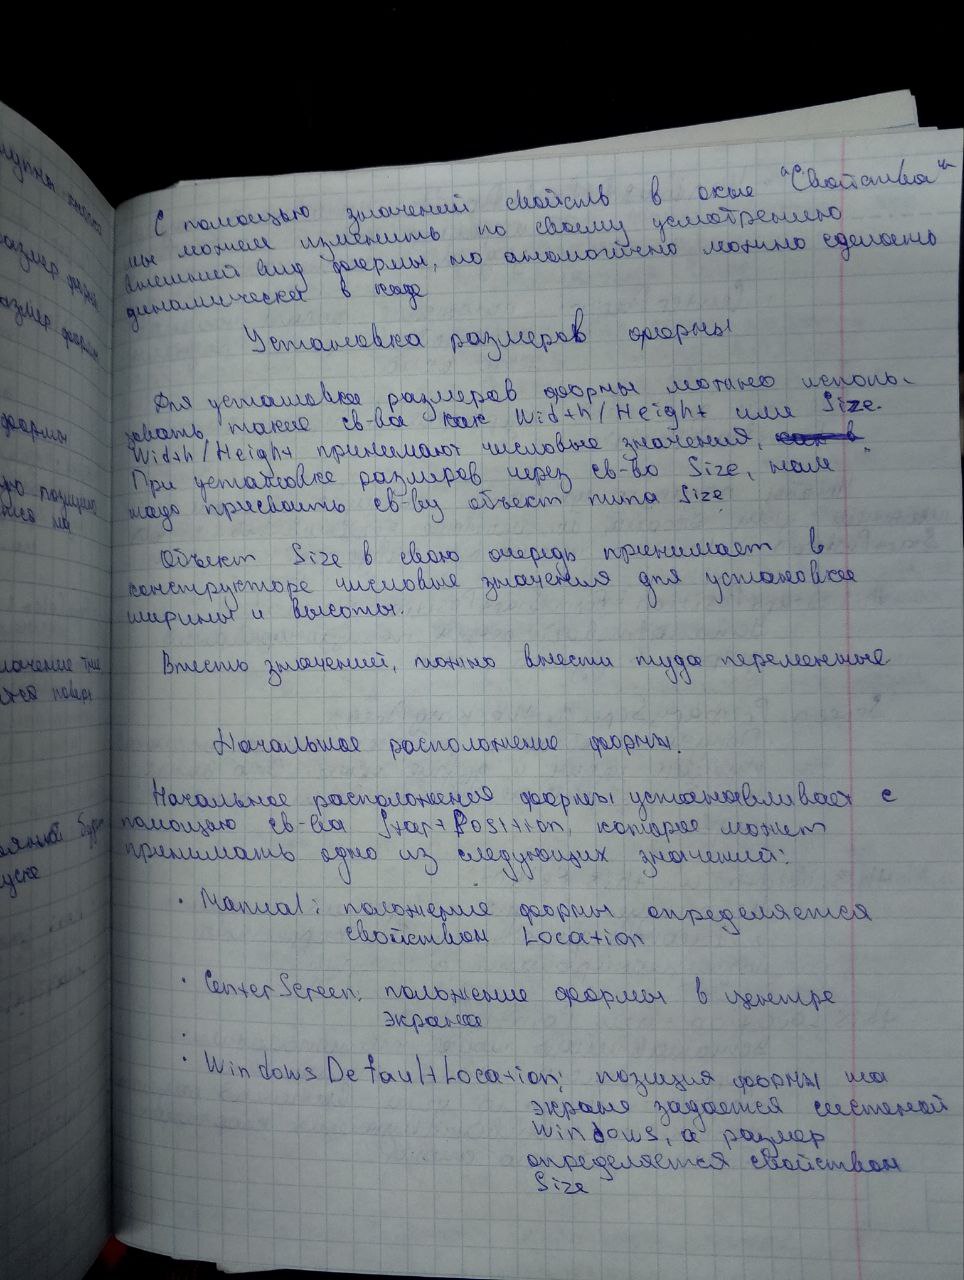 С помощью значений свойств в окне "Свойства"
мы можем изменить по своему усмотрению
внешний вид формы, но аналогично можно сделать
динамически в коде
Установка размеров формы
Для установки размеров формы можно исполь-
зовать такие св-ва как Width/Height или Size.
Width/Height принимают числовые значения,
При установке размеров через св-во Size, нам
надо присвоить св-ву объект типа Size
Объект Size в свою очередь принимает в
конструкторе числовые значения для установки
ширины и высоты.
Вместо значений, можно внести туда переменные
Начальное расположение формы.
Начальное расположение формы устанавливает с
помощью св-ва StartPosition, которое может
принимать одно из следующих значений:
· Manual: положение формы определяется
свойством Location
· CenterScreen: положение формы в центре
экрана
· WindowsDefaultLocation: позиция формы на
экране задается системой
Windows, а размер
определяется свойством
Size
размер формы
размер формы
формы